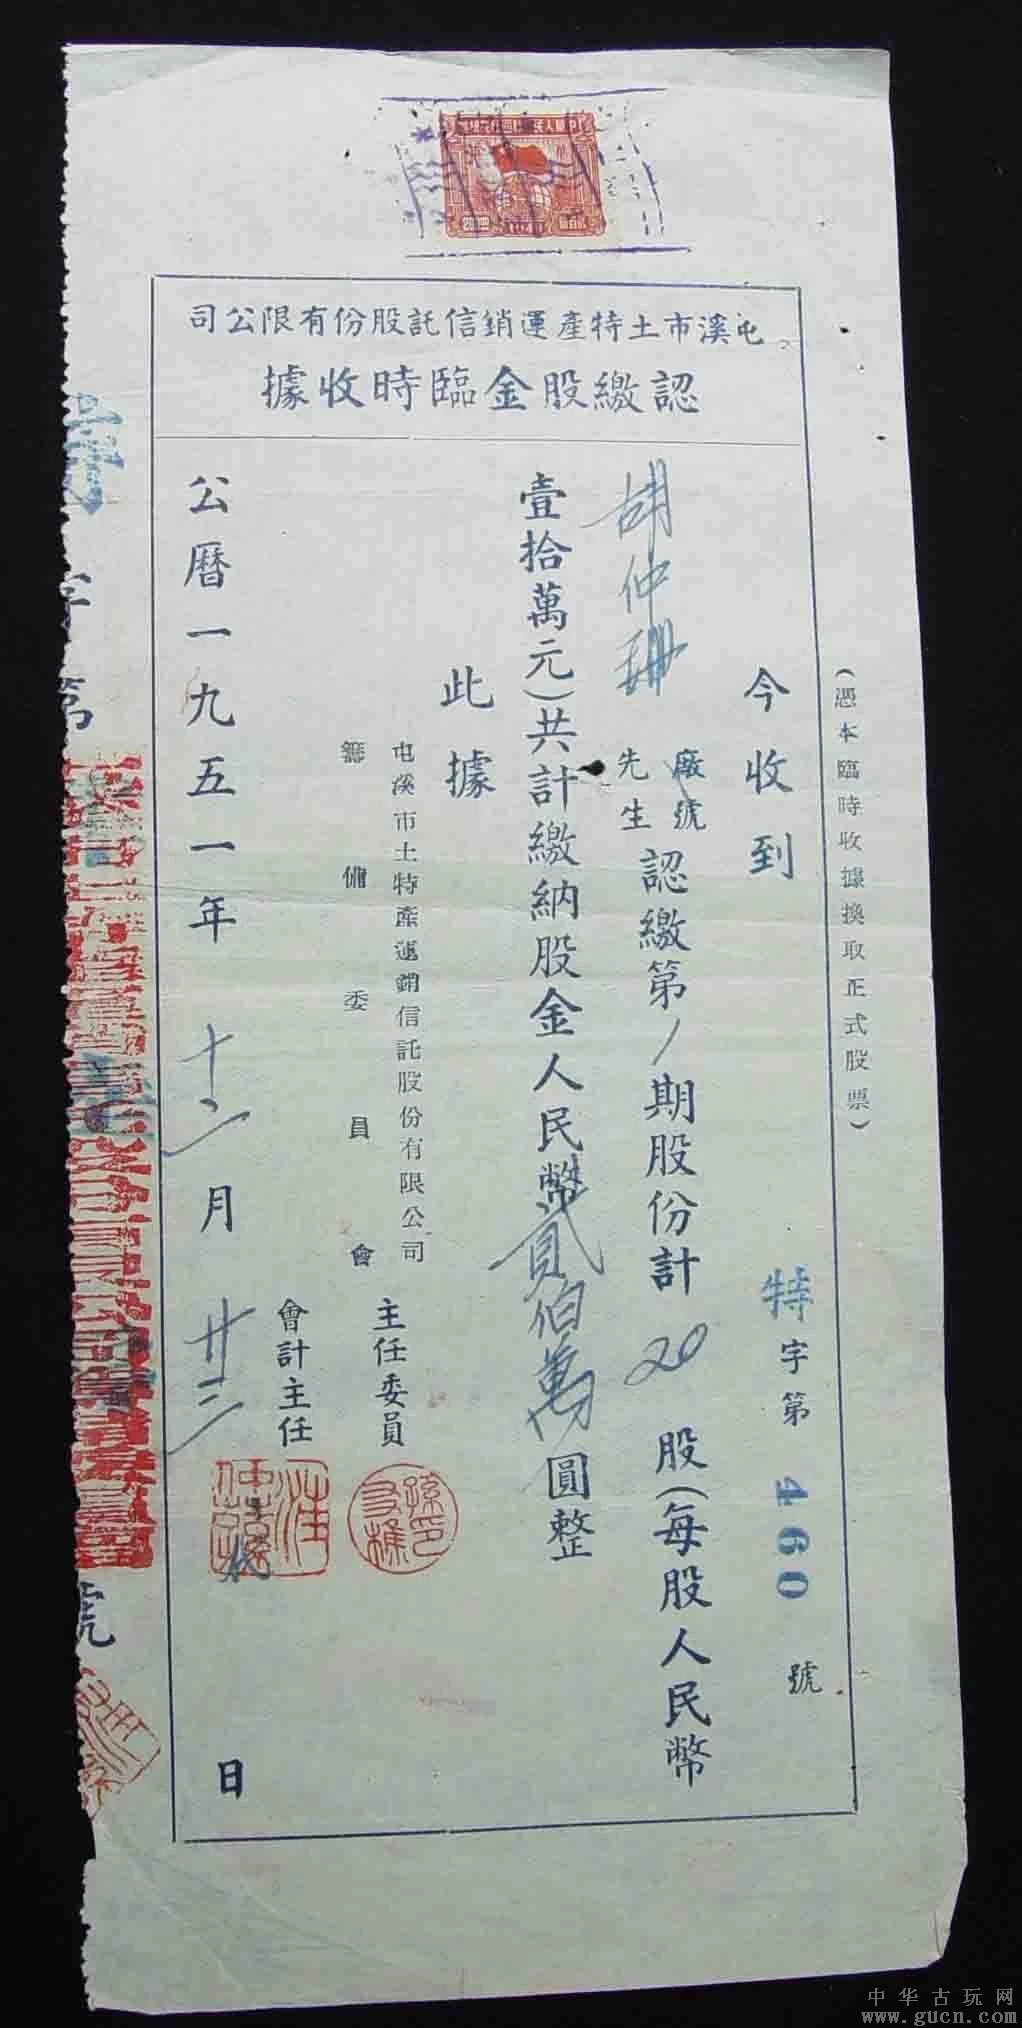 屯溪市土特產運銷信託股份有限公司
認繳股金臨時收據
(憑本臨時收據換取正式股票)
特字第460號
今收到
胡仲珊 廠號 先生 認繳第1期股份計20股(每股人民幣
壹拾萬元)共計繳納股金人民幣貳佰萬圓整
此據
屯溪市土特產運銷信託股份有限公司
籌備委員會
主任委員
會計主任
公曆一九五一年十二月廿三日
字第
號
中华古玩网
www.gucn.com